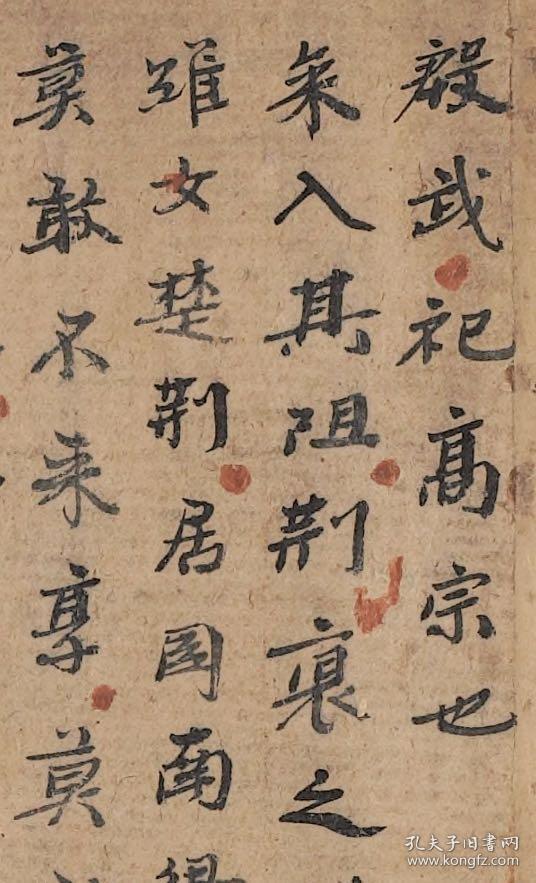 殷武祀髙宗也
入其阻荆裒之
維女楚荆居国南
莫敢不来享莫
孔夫子旧書网
www.kongfz.com